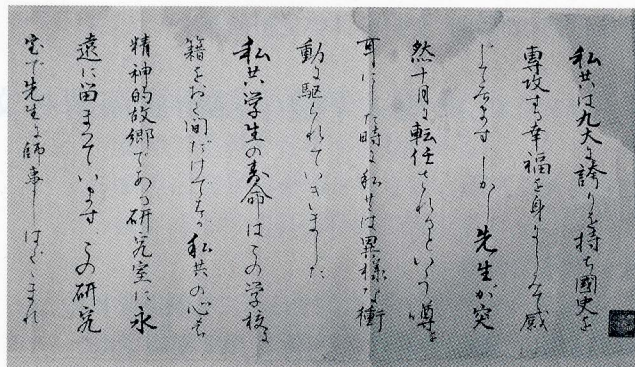 私共は九大に誇りを持ち國史を
専攻する幸福を身にしみて感
じて居ます しかし先生が突
然十月に転任されるという噂を
耳にした時に私共は異様な衝
動に駆られていきました
私共学生の寿命はこの学校に
籍をおく間だけですが私共の心は
精神的故郷である研究室に永
遠に留まっています この研究
室で先生に師事しはぐくまれ